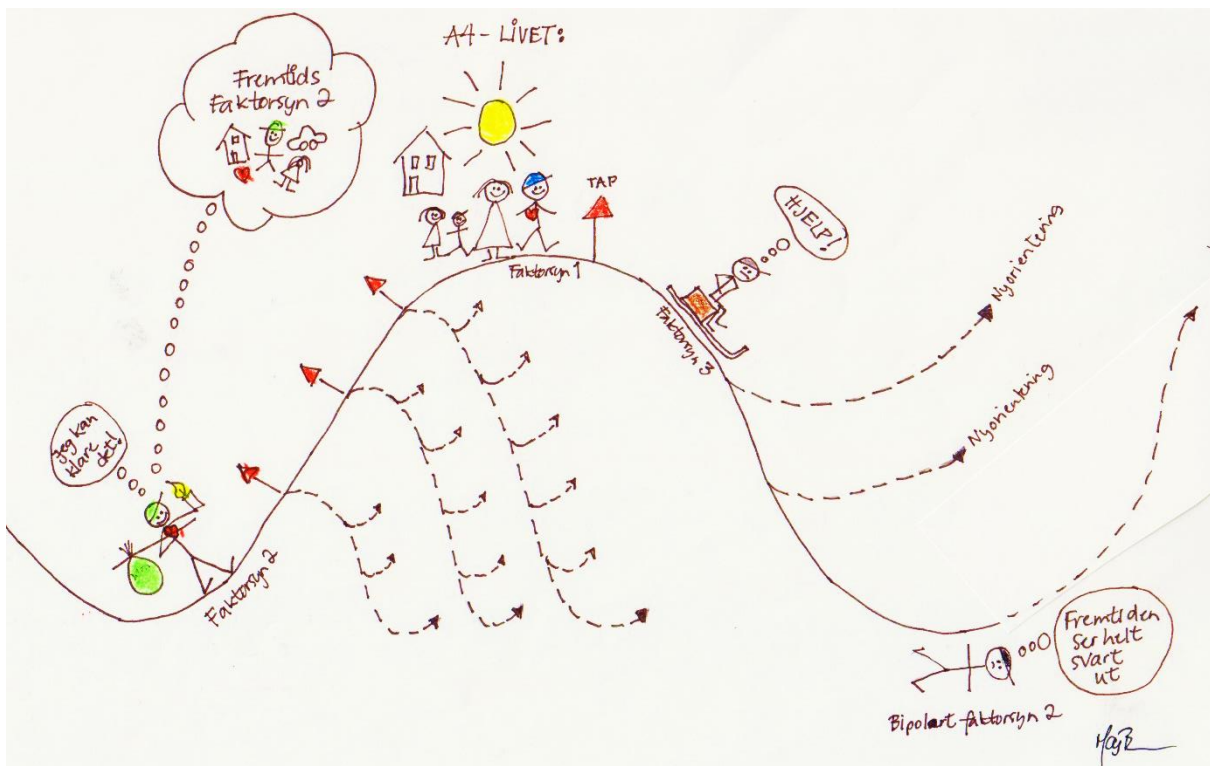 A4-LIVET:
Fremtids
Faktorsyn 2
TAP
Faktorsyn 1
HJELP!
Faktorsyn 3
Nyorientering
Nyorientering
Jeg kan
klare
det!
Faktorsyn 2
Fremtiden
ser helt
svart
ut
Bipolart faktorsyn 2